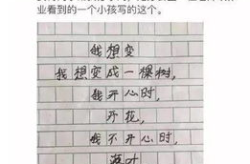 业看到的一个小孩写的这个。
我想变
我想变成一棵树,
我开心时,
开花,
我不开心时,